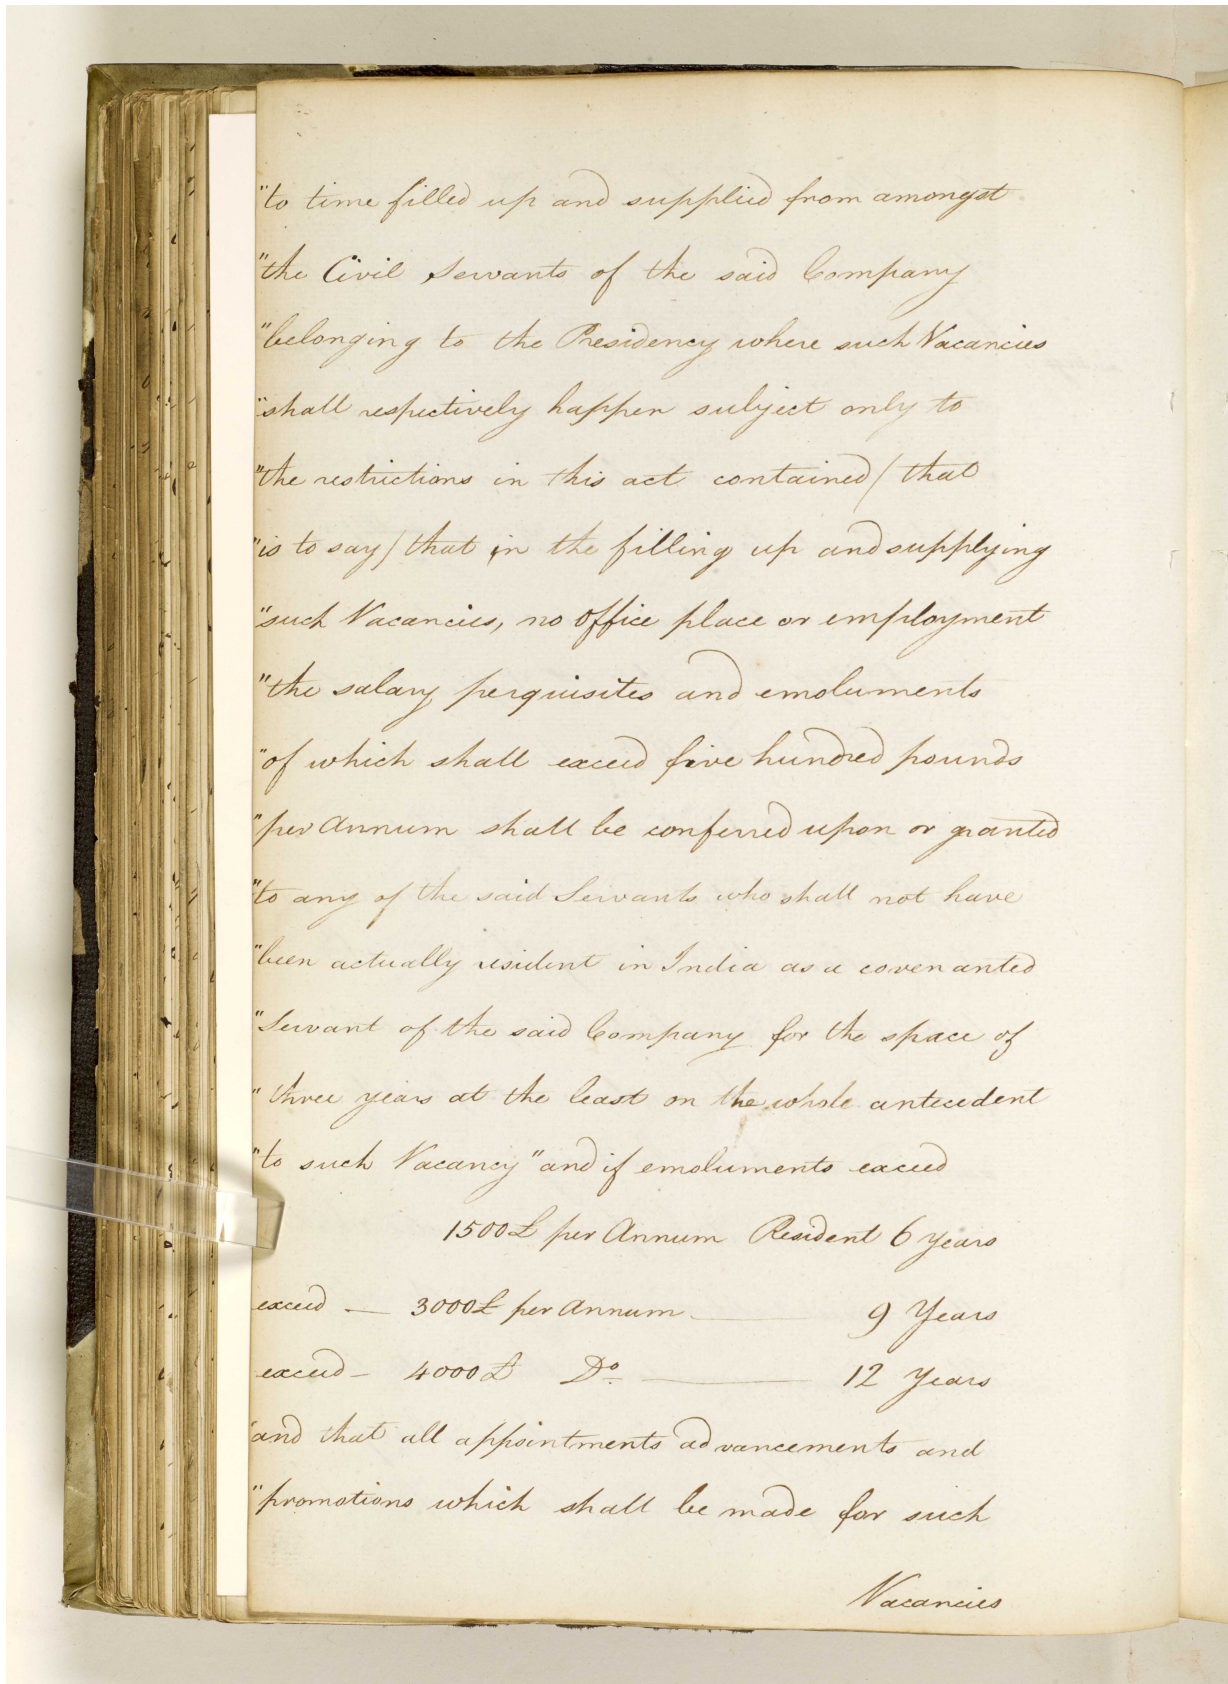 "to time filled up and supplied from amongst
"the Civil Servants of the said Company
"belonging to the Presidency where such Vacancies
"shall respectively happen subject only to
"the restrictions in this act contained / that
"is to say / that in the filling up and supplying
"such Vacancies, no office place or employment
"the salary perquisites and emoluments
"of which shall exceed five hundred pounds
"per Annum shall be conferred upon or granted
"to any of the said Servants who shall not have
"been actually resident in India as a covenanted
"Servant of the said Company for the space of
"three years at the least on the whole antecedent
"to such Vacancy" and if emoluments exceed
1500£ per Annum Resident 6 years
exceed — 3000£ per Annum — 9 Years
exceed — 4000£ Do — 12 Years
"and that all appointments advancements and
"promotions which shall be made for such
Vacancies